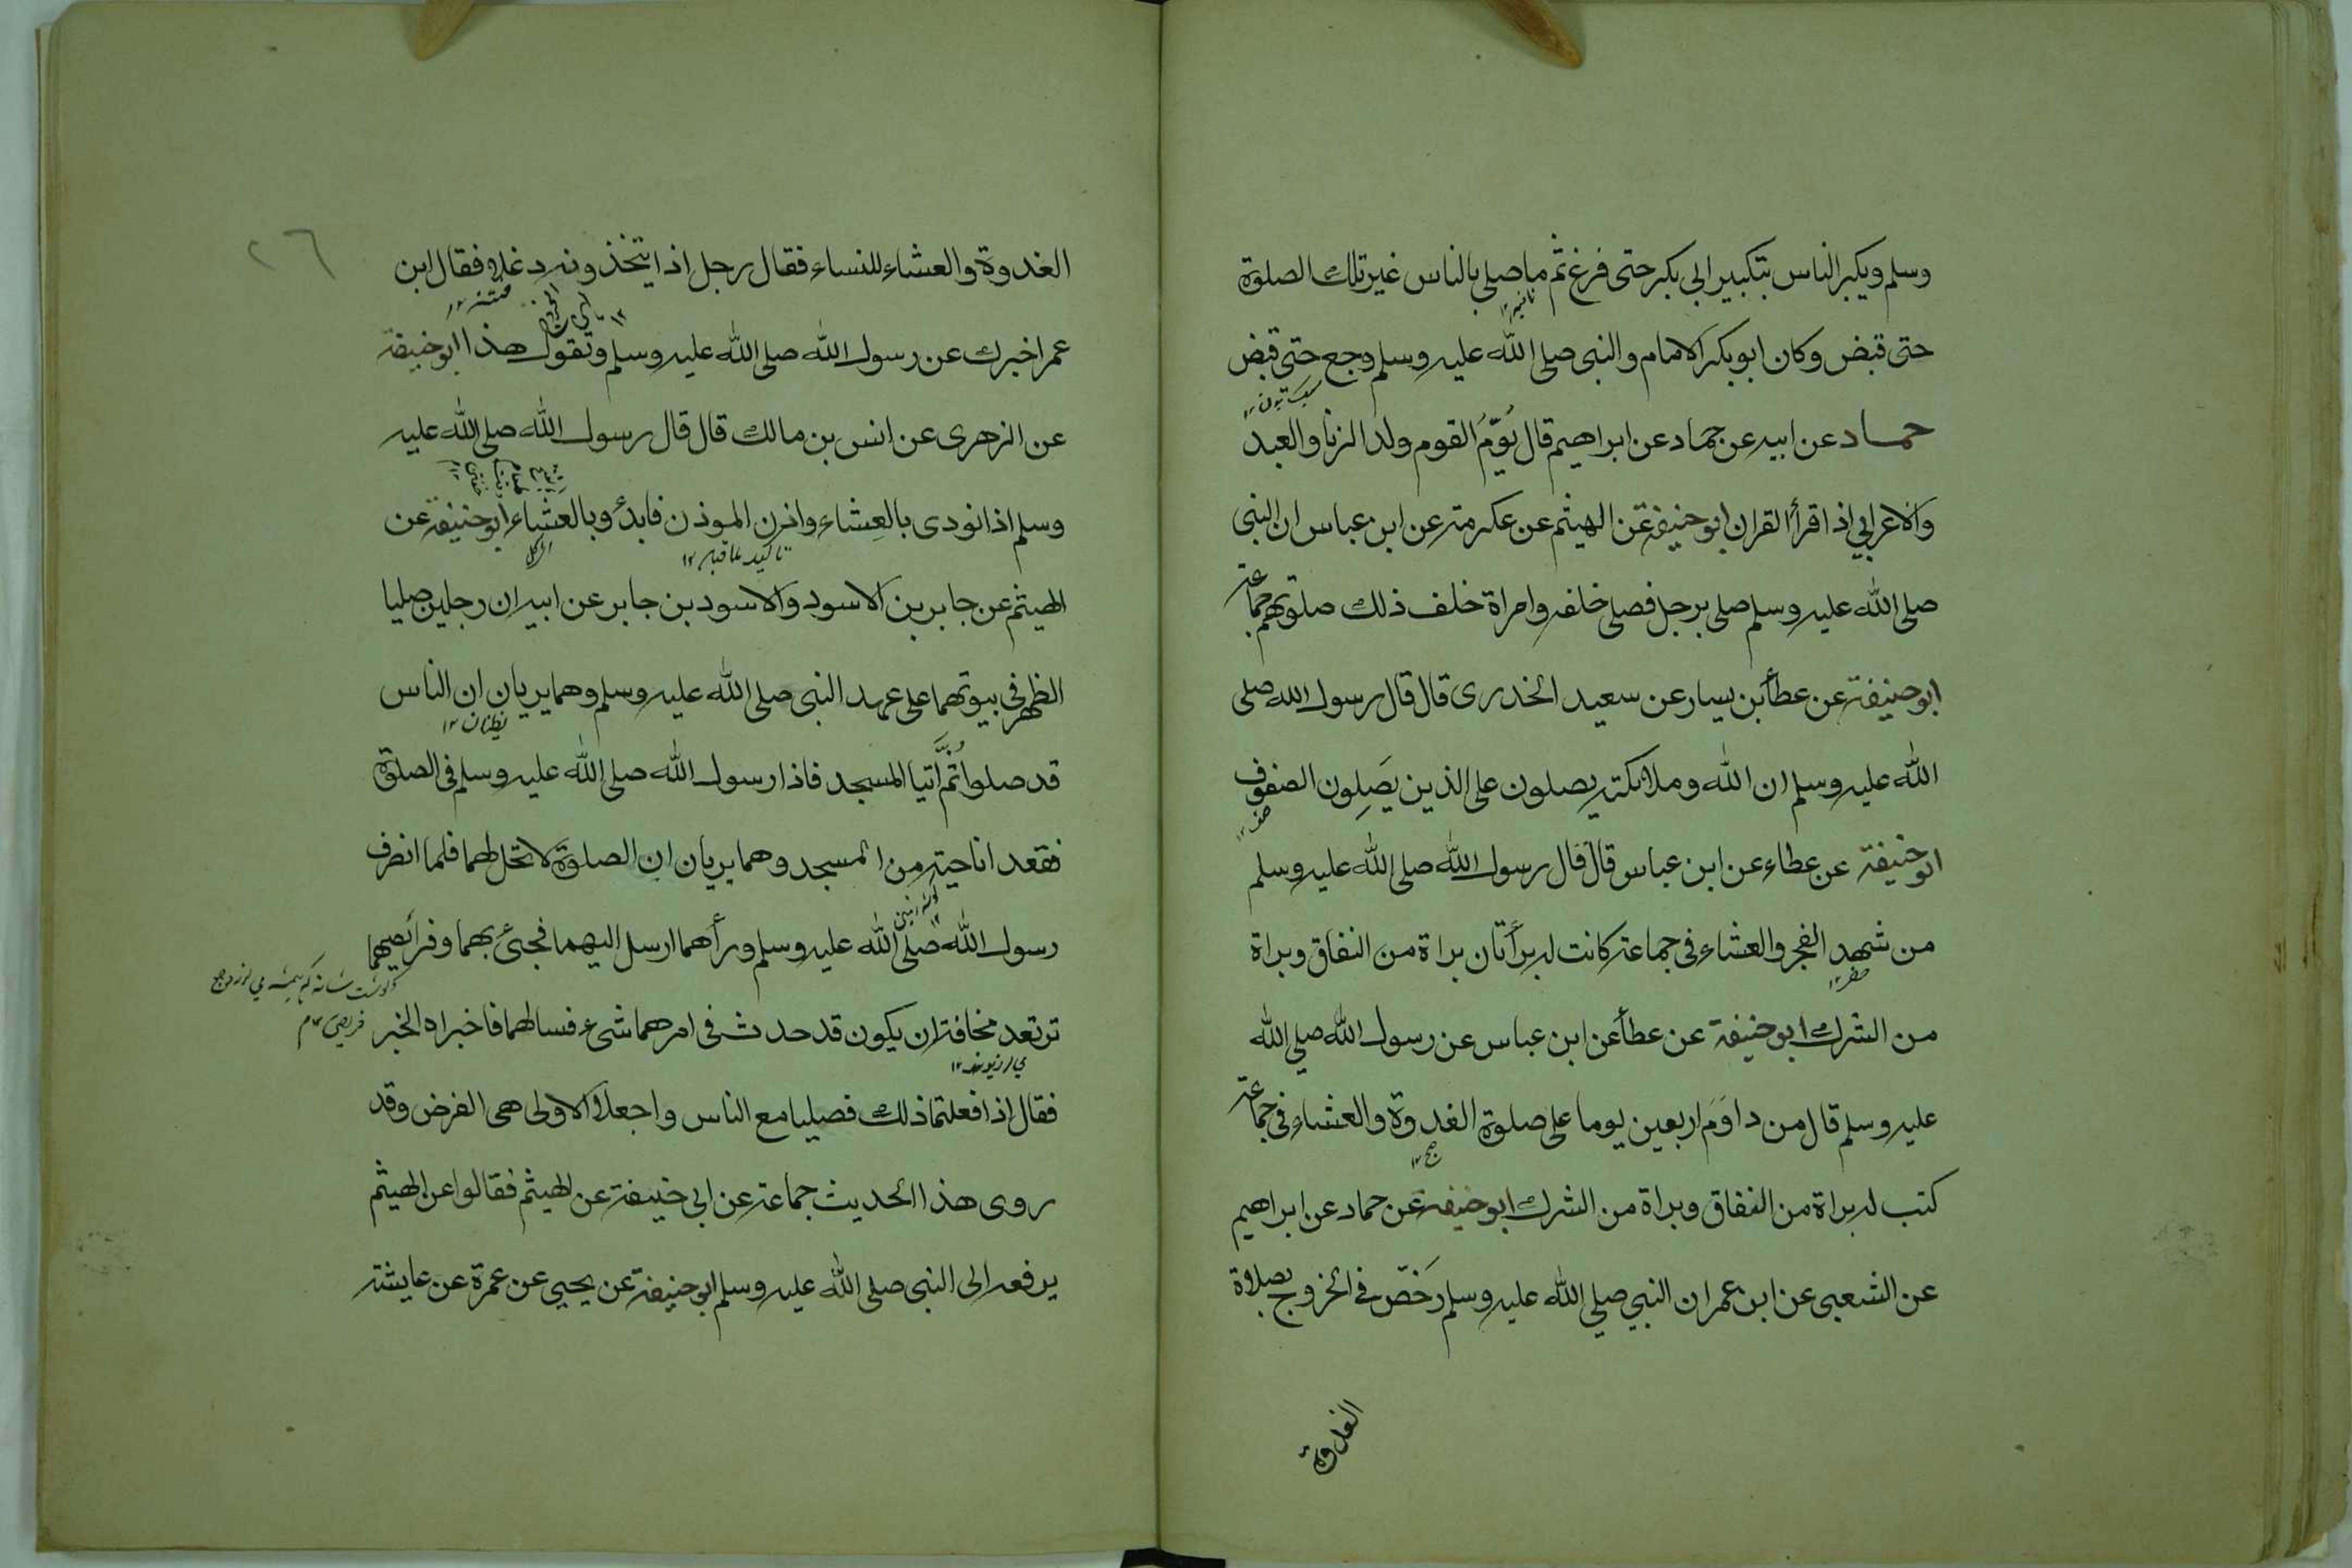 وسلم ويكبر الناس بتكبير ابي بكر حتى فرغ ثم ما صلى بالناس غير تلك الصلوة
حتى قبض وكان ابو بكر الامام والنبى صلى الله عليه وسلم وجع حتى قبض
حماد عن ابيه عن حماد عن ابراهيم قال يُؤمّ القوم ولد الزنا والعبد
والاعرابي اذا قرأ القران ابو حنيفة عن الهيثم عن عكرمة عن ابن عباس ان النبى
صلى الله عليه وسلم صلى برجل فصلى خلفه وامراة خلف ذلك صلوتهم جماعة
ابو حنيفة عن عطأ بن يسار عن سعيد الخدرى قال قال رسول الله صلى
الله عليه وسلم ان الله وملائكته يصلون على الذين يَصِلون الصفوف
ابو حنيفة عن عطاء عن ابن عباس قال قال رسول الله صلى الله عليه وسلم
من شهد الفجر والعشاء فى جماعة كانت له برأتان براة من النفاق وبراة
من الشرك ابو حنيفة عن عطأ عن ابن عباس عن رسول الله صلى الله
عليه وسلم قال من داوَمَ اربعين يوما على صلوة الغدوة والعشاء فى جماعة
صبح ١٢
كتب له براة من النفاق وبراة من الشرك ابو حنيفة عن حماد عن ابراهيم
عن الشعبى عن ابن عمر ان النبي صلي الله عليه وسلم رَخّص في الخروج بصلاة
الغدوة
٢٦
الغدوة والعشاء للنساء فقال رجل اذا يتخذونه دغلا فقال ابن
عمر اخبرك عن رسول الله صلى الله عليه وسلم وتقول هذا ابو حنيفة
عن الزهرى عن انس بن مالك قال قال رسول الله صلى الله عليه
وسلم اذا نودى بالعِشاء واذن الموذن فابدؤ بالعَشاء ابو حنيفة عن
تاكيد ماقبله ١٢
الهيثم عن جابر بن الاسود والاسود بن جابر عن ابيه ان رجلين صليا
الظهر فى بيوتهما على عهد النبى صلى الله عليه وسلم وهما يريان ان الناس
يظنان ١٢
قد صلوا ثُمَّ اتيا المسجد فاذا رسول الله صلى الله عليه وسلم فى الصلوة
فقعدا ناحية من المسجد وهما يريان ان الصلوة لا تحل لهما فلما انصرف
رسول الله صلى الله عليه وسلم ورأهما ارسل اليهما فجئ بهما وفرائصهما
ترتعد مخافة ان يكون قد حدث فى امرهما شئ فسالهما فاخبراه الخبر
فقال اذا فعلتما ذلك فصليا مع الناس واجعلا الاولى هى الفرض وقد
روى هذا الحديث جماعة عن ابي حنيفة عن الهيثم فقالوا عن الهيثم
يرفعه الى النبى صلى الله عليه وسلم ابو حنيفة عن يحيي عن عمرة عن عايشة